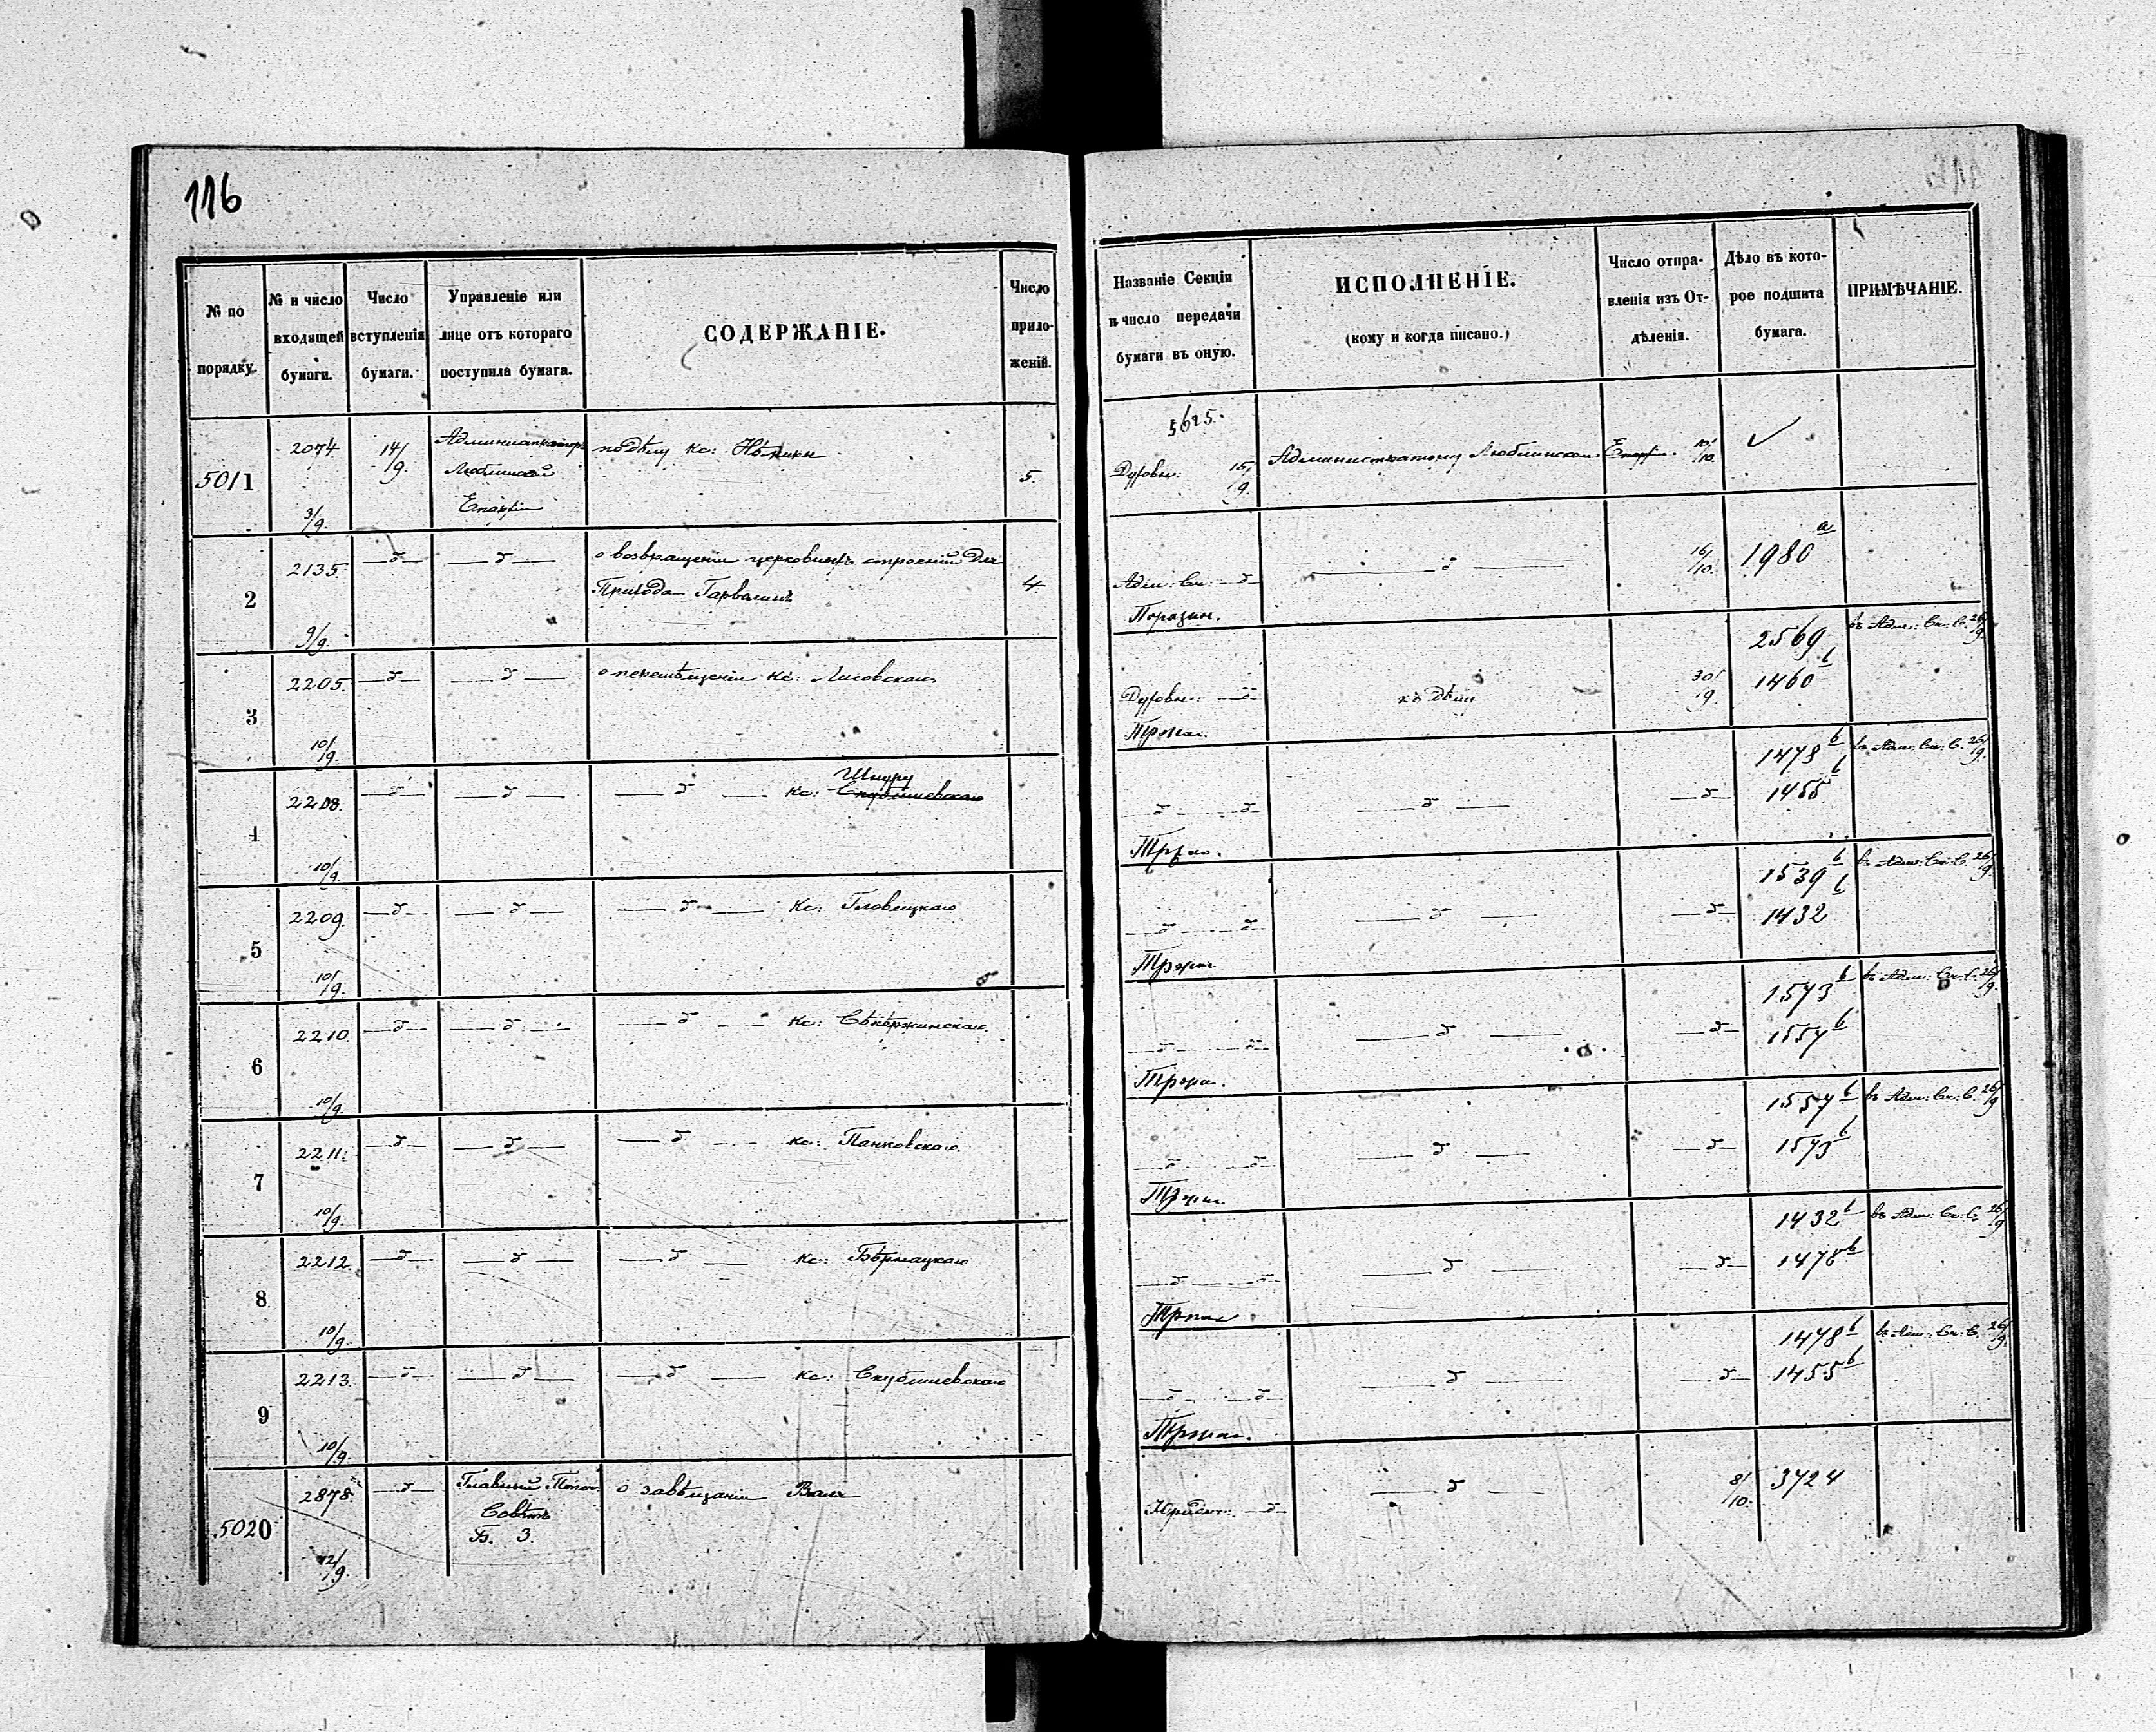 116
№ по порядку.
№ и число входящей бумаги.
Число вступленія бумаги.
Управленіе или лице отъ котораго поступила бумага.
СОДЕРЖАНІЕ.
Число прило-женій.
5011
2074 3/9.
14/9.
Администраторъ Люблинской Епархіи
по дѣлу кс:
5.
2
2135. 9/9.
— ъ —
— ъ —
о возвращеніи церковныхъ строеній для
Прихода Гарволинъ
4
3
2205. 10/9.
— ъ —
— ъ —
о перемѣщеніи кс: Лисовскаго
4
2208. 10/9.
— ъ —
— ъ —
— ъ — кс: Шнуру
Скублишевскаго
5
2209. 10/9.
— ъ —
— ъ —
— ъ — кс: Гловицкаго
6
2210. 10/9.
— ъ —
— ъ —
— ъ — кс:
7
2211. 10/9.
— ъ —
— ъ —
— ъ — кс: Панковскаго
8
2212 10/9.
— ъ —
— ъ —
— ъ — кс: Бѣрнацкаго
9
2213. 10/9.
— ъ —
— ъ —
— ъ — кс: Скублишевскаго
5020
2878. 12/9.
— ъ —
Главный Совѣтъ Б. З.
о завѣщаніи
Названіе Секціи и число передачи бумаги въ оную.
ИСПОЛНЕНІЕ.
(кому и когда писано.)
Число отпра-вленія изъ От-дѣленія.
Дѣло въ кото-рое подшита бумага.
ПРИМѢЧАНІЕ.
5625.
Духовн: 15/9.
Администратору Люблинской Епархіи.
10/10.
✓
Адм: Ск: — ъ
— ъ —
16/10.
1980 a
Духовн: — ъ —
къ дѣлу
30/9.
2569
1460 b
въ Адм: Ск: С. 26/9.
— ъ — ъ
— ъ —
— ъ —
1478 b
1455 b
въ Адм: Ск: С. 26/9.
— ъ — ъ —
— ъ —
— ъ —
1539 b
1432 b
въ Адм: Ск: С. 26/9
— ъ — ъ —
— ъ —
— ъ —
1573 b
1557 b
въ Адм: Ск: С. 26/9.
— ъ — ъ —
— ъ —
— ъ —
1557 b
1573 b
въ Адм: Ск: С. 26/9
— ъ — ъ —
— ъ —
— ъ —
1432 b
1478 b
въ Адм: Ск: С. 26/9
— ъ — ъ —
— ъ —
— ъ —
1478 b
1455 b
въ Адм: Ск: С. 26/9.
— ъ —
— ъ —
8/10.
3724